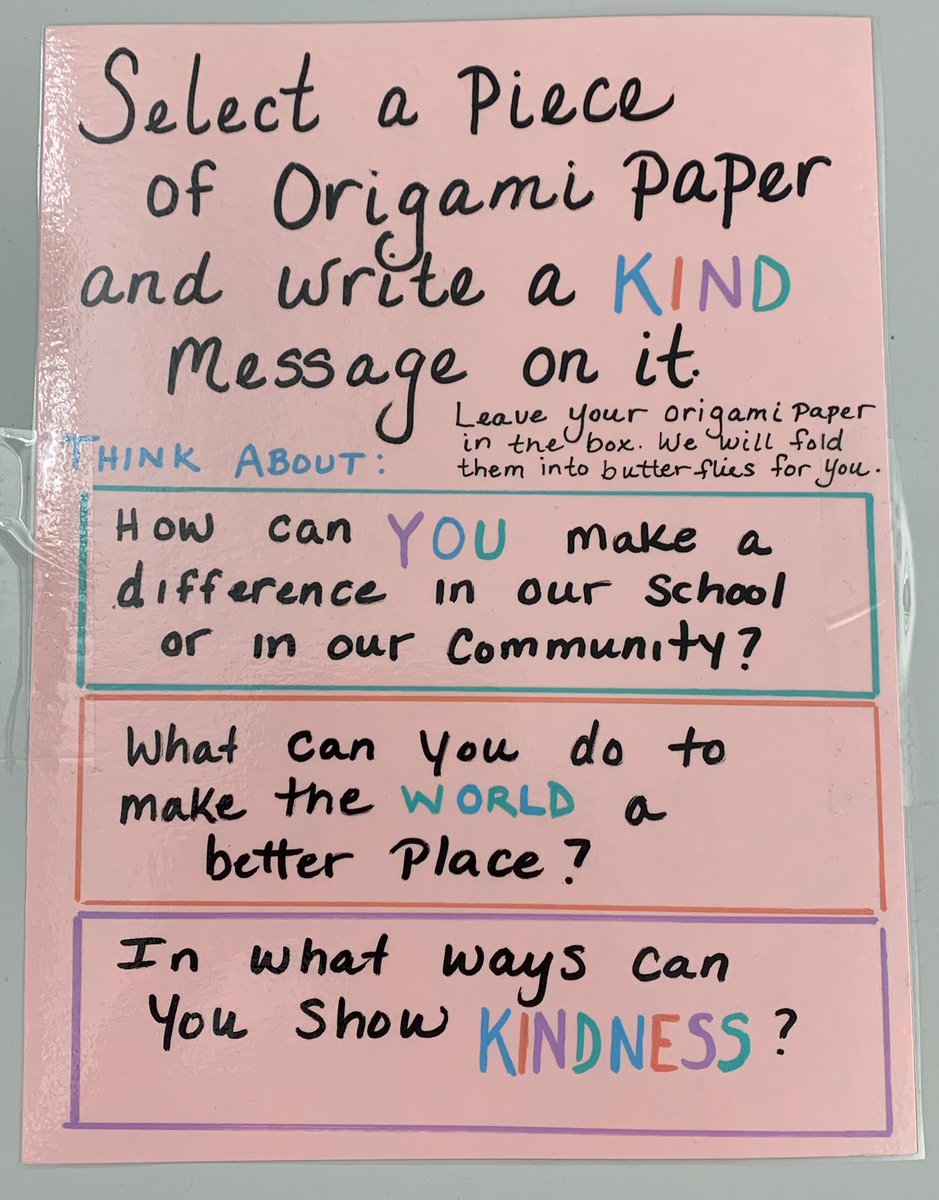 Select a Piece
of Origami Paper
and write a KIND
Message on it.
Leave your origami Paper
in the box. We will fold
them into butterflies for you.
THINK ABOUT:
How can YOU make a
difference in our School
or in our Community?
What can you do to
make the WORLD a
better Place?
In what ways can
You Show KINDNESS?